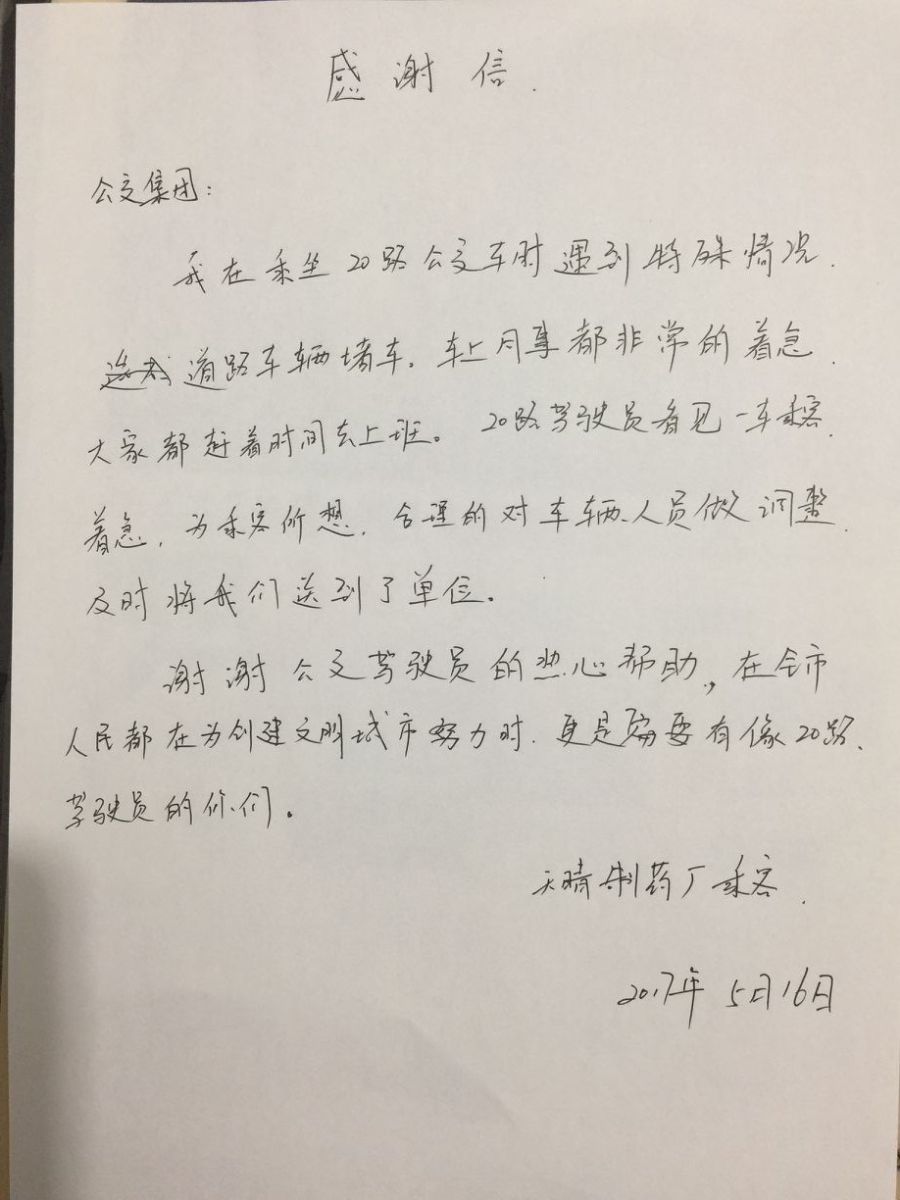 感谢信.
公交集团:
我在乘坐20路公交车时遇到特殊情况.
道路车辆堵车. 车上同事都非常的着急.
大家都赶着时间去上班。 20路驾驶员看见一车乘客
着急, 为乘客所想, 合理的对车辆、人员做调整.
及时将我们送到了单位。
谢谢公交驾驶员的热心帮助, 在全市
人民都在为创建文明城市努力时. 更是需要有像20路.
驾驶员的你们。
天晴制药厂乘客.
2017年5月16日